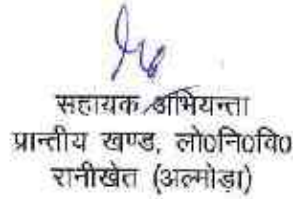 सहायक अभियन्ता
प्रान्तीय खण्ड, लो0नि0वि0
रानीखेत (अल्मोड़ा)